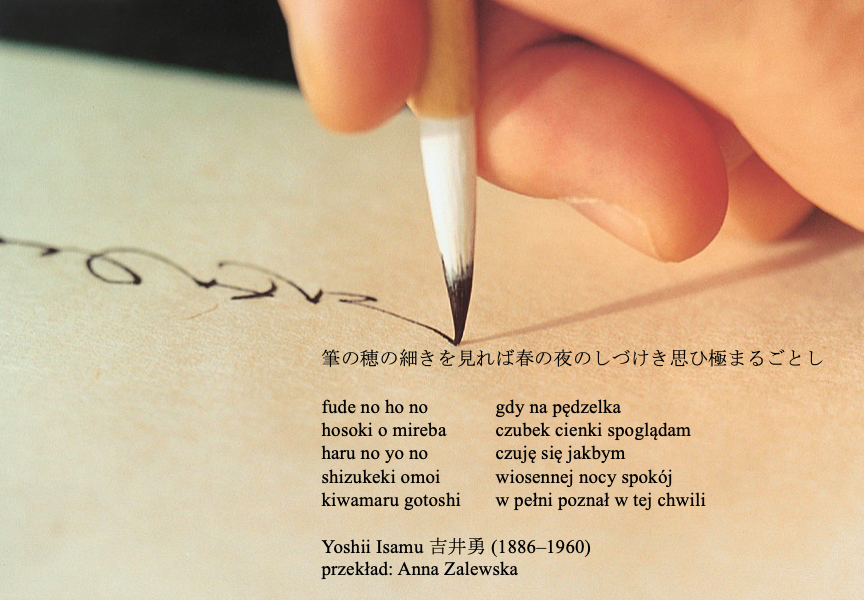 筆の穂の細きを見れば春の夜のしづけき思ひ極まるごとし
fude no ho no
hosoki o mireba
haru no yo no
shizukeki omoi
kiwamaru gotoshi
gdy na pędzelka
czubek cienki spoglądam
czuję się jakbym
wiosennej nocy spokój
w pełni poznał w tej chwili
Yoshii Isamu 吉井勇 (1886–1960)
przekład: Anna Zalewska